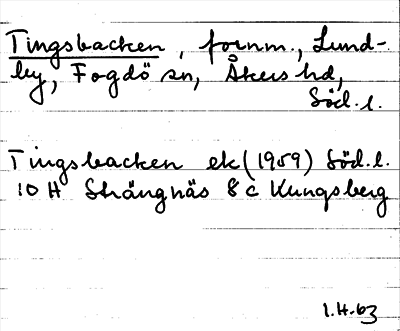 Tingsbacken, fornm., Lund-
by, Fogdö sn, Åkers hd,
Söd. l.
Tingsbacken ek (1959) Söd. l.
10 H Strängnäs 8 c Kungsberg
1.4.63